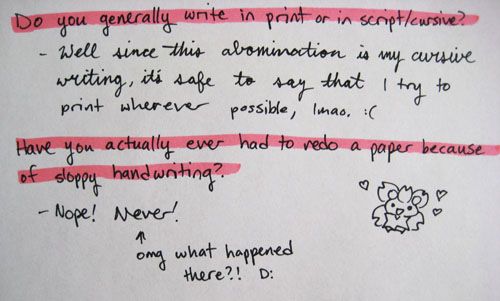 Do you generally write in print or in script/cursive?
- Well since this abomination is my cursive
writing, it's safe to say that I try to
print wherever possible, lmao. :(
Have you actually ever had to redo a paper because
of sloppy handwriting?
- Nope! Never!
omg what happened
there?! D: